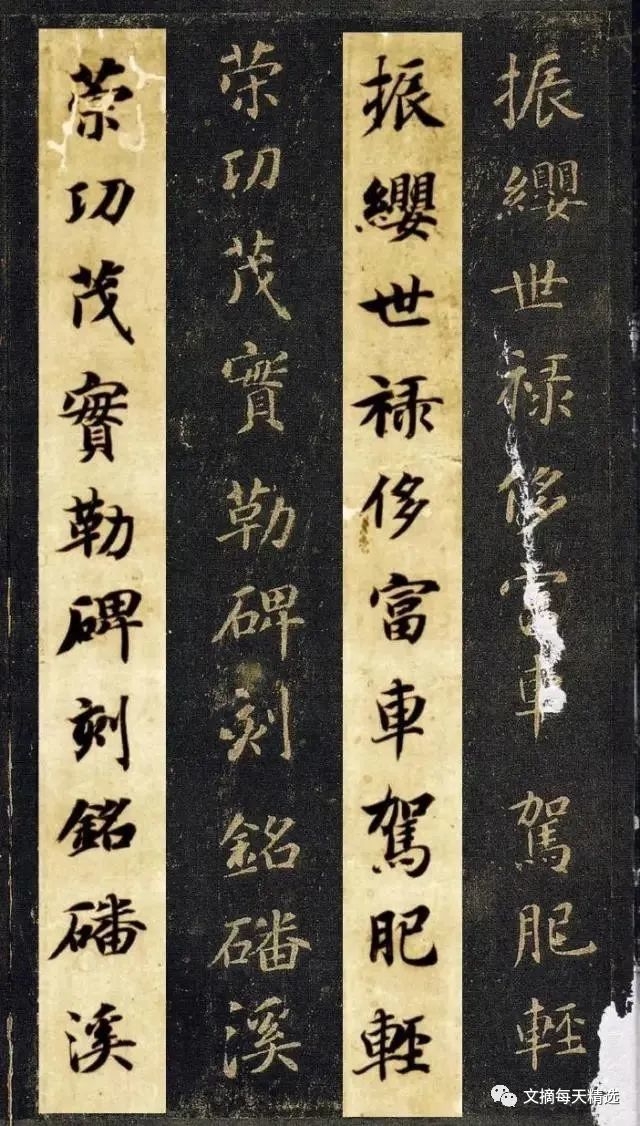 振纓世禄侈富車駕肥輕
振纓世禄侈富車駕肥輕
策功茂實勒碑刻銘磻溪
策功茂實勒碑刻銘磻溪
文摘每天精选